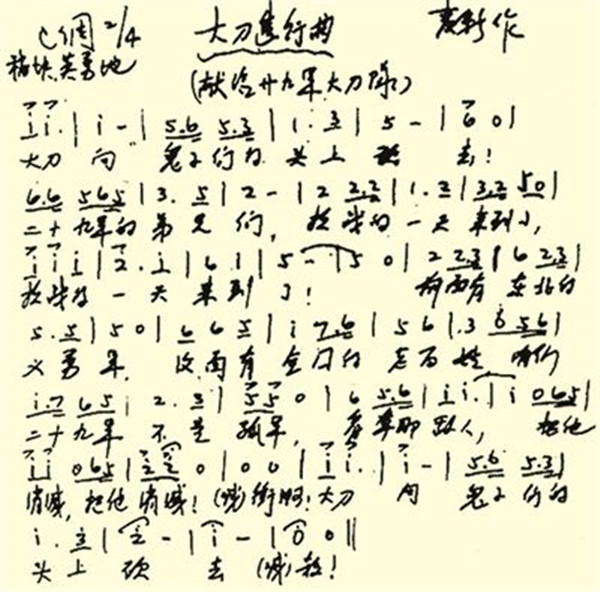 C调 2/4 大刀进行曲 麦新作
稍快 英勇地
(献给廿九军大刀队)
i i. | i - | 5.6 5.3 | 1. 3 | 5 - | 6 0 |
大刀 向 鬼子们的 头上 砍 去!
6.6 5 6 5 | 3. 5 | 2 - | 2 2.3 | 1. 2 | 3.2 5 0 |
二十九军的 弟兄们, 抗战的 一天 来到了,
i i i | 2. i | 6 i | 5 - | 5 0 | 2 2 3 | 6 2.3 |
抗战的 一天 来到了! 前面有 东北的
5. 5 | 5 0 | 6 6 5 | i 7.6 | 5 6 | .3 0 5 6 |
义勇军, 后面有 全国的 老百姓 咱们
i.7 6 5 | 2. 3 | 5 5 0 | 6 5.6 | i i. | i 0 6 5 |
二十九军 不是 孤军, 看准那 敌人, 把他
i i 0 6 5 | 2 2 0 | 0 0 | i i. | i - | 5.6 5.3 |
消灭, 把他 消灭! (喊)冲啊! 大刀 向 鬼子们的
i. 3 | 2 - | i - | 0 0 ‖
头上 砍 去 (喊)杀!